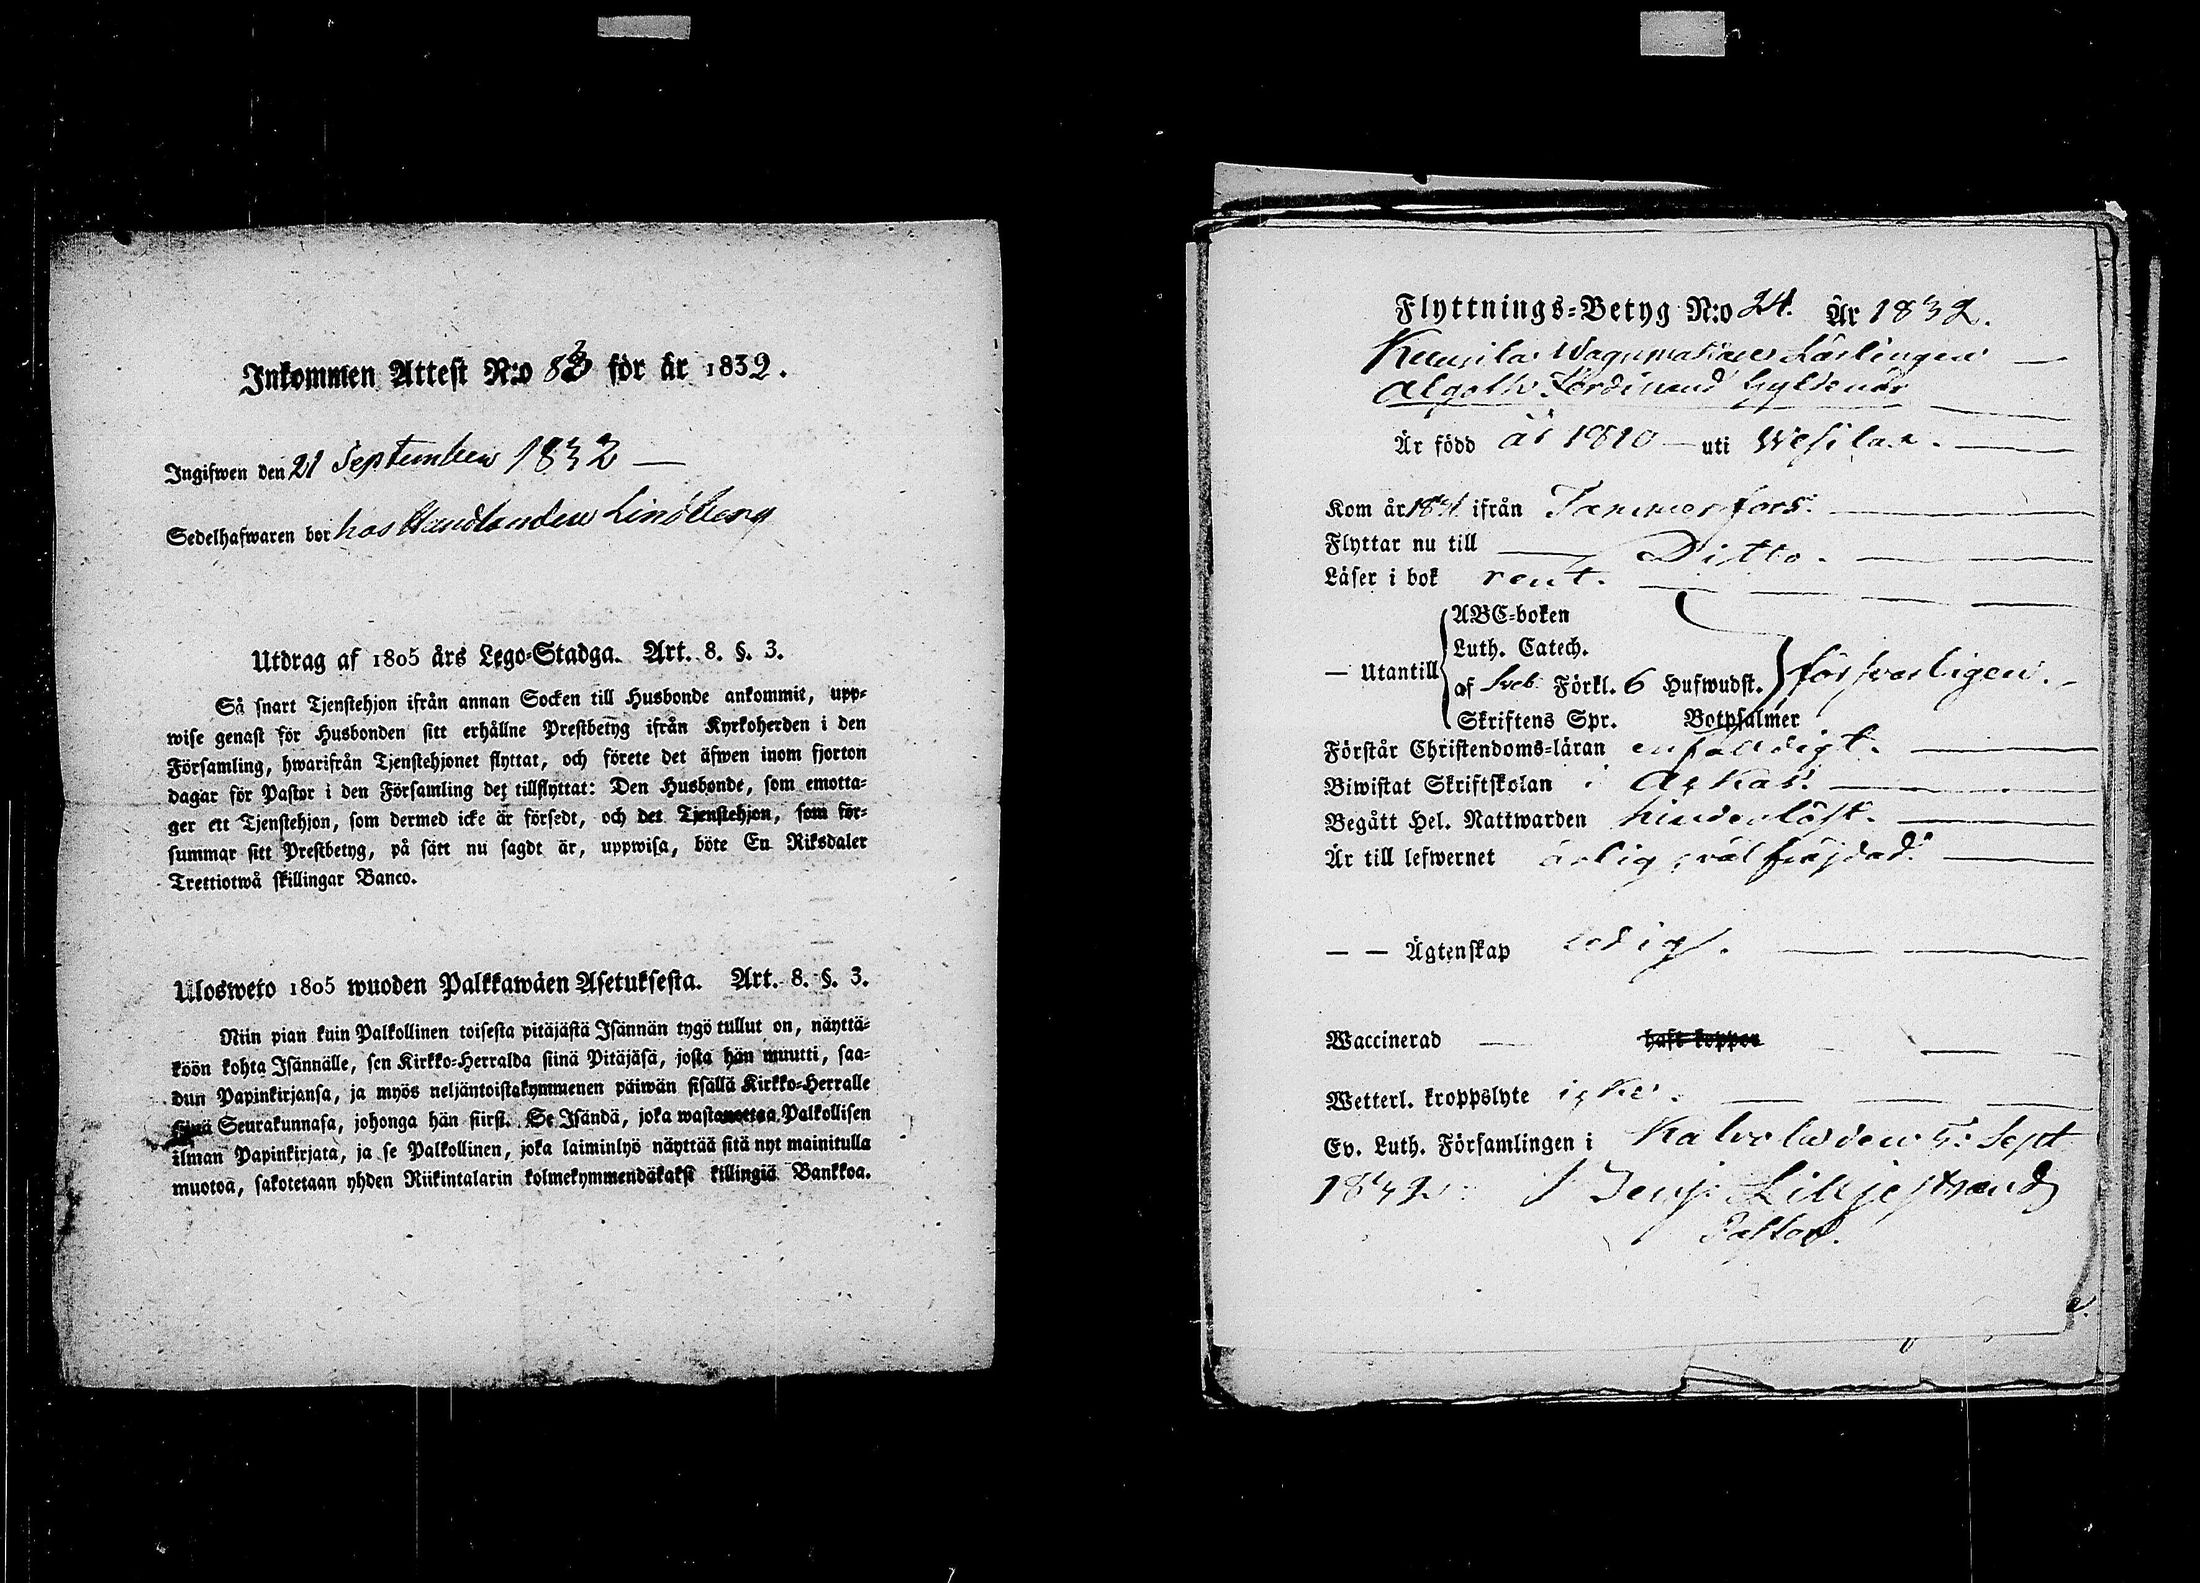 Inkommen Attest N:o 83 för år 1832.
Ingifwen den 21 September 1832 —
Sedelhafwaren bor hos Handlanden Lindberg
Utdrag af 1805 års Lego-Stadga. Art. 8. §. 3.
Så snart Tjenstehjon ifrån annan Socken till Husbonde ankommit, upp-
wise genast för Husbonden sitt erhållne Prestbetyg ifrån Kyrkoherden i den
Församling, hwarifrån Tjenstehjonet flyttat, och förete det äfwen inom fjorton
dagar för Pastor i den Församling det tillflyttat: Den Husbonde, som emotta-
ger ett Tjenstehjon, som dermed icke är försedt, och det Tjenstehjon, som för-
summar sitt Prestbetyg, på sätt nu sagdt är, uppwisa, böte En Riksdaler
Trettiotwå skillingar Banco.
Ulosweto 1805 wuoden Palkkawäen Asetuksesta. Art. 8. §. 3.
Niin pian kuin Palkollinen toisesta pitäjästä Isännän tygö tullut on, näyttä-
köön kohta Isännälle, sen Kirkko-Herralda siinä Pitäjäsä, josta hän muutti, saa-
dun Papinkirjansa, ja myös neljäntoistakymmenen päiwän sisällä Kirkko-Herralle
siinä Seurakunnasa, johonga hän siirst. Se Isändä, joka wastaanottaa Palkollisen
ilman Papinkirjata, ja se Palkollinen, joka laiminlyö näyttää sitä nyt mainitulla
muotoa, sakotetaan yhden Riikintalarin kolmekymmendäkaksi killingiä Bankkoa.
Flyttnings-Betyg N:o 24. År 1832.
Wagnmakare Lärlingen —
Algoth Ferdinand Gyldenär
Är född år 1810 — uti Wesilax. —
Kom år 1831 ifrån Tammerfors. —
Flyttar nu till — Ditto. —
Läser i bok rent. —
ABC-boken
Luth. Catech.
— Utantill af Sveb. Förkl. 6 Hufwudst. försvarligen. —
Skriftens Spr. Botpsalmer
Förstår Christendoms-läran enfaldigt. —
Biwistat Skriftskolan i Askas. —
Begått Hel. Nattwarden hinderlöst. —
Är till lefwernet ärlig, väl fräjdad. —
— — Ägtenskap ledig. —
Waccinerad — haft koppor
Wetterl. kroppslyte icke. —
Ev. Luth. Församlingen i Kalvola den 5: Sept
1832. Benj: Lilljestrand
Pastor.